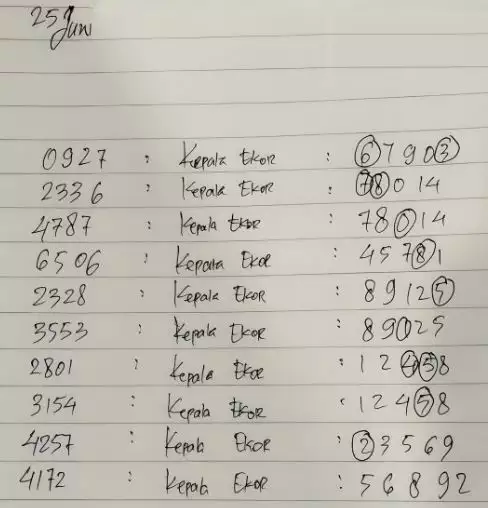 25 Juni
0927 : Kepala Ekor : 67903
2336 : Kepala Ekor : 78014
4787 : Kepala Ekor : 78014
6506 : Kepala Ekor : 45781
2328 : Kepala Ekor : 89125
3553 : Kepala Ekor : 89025
2801 : Kepala Ekor : 12458
3154 : Kepala Ekor : 12458
4257 : Kepala Ekor : 23569
4172 : Kepala Ekor : 56892